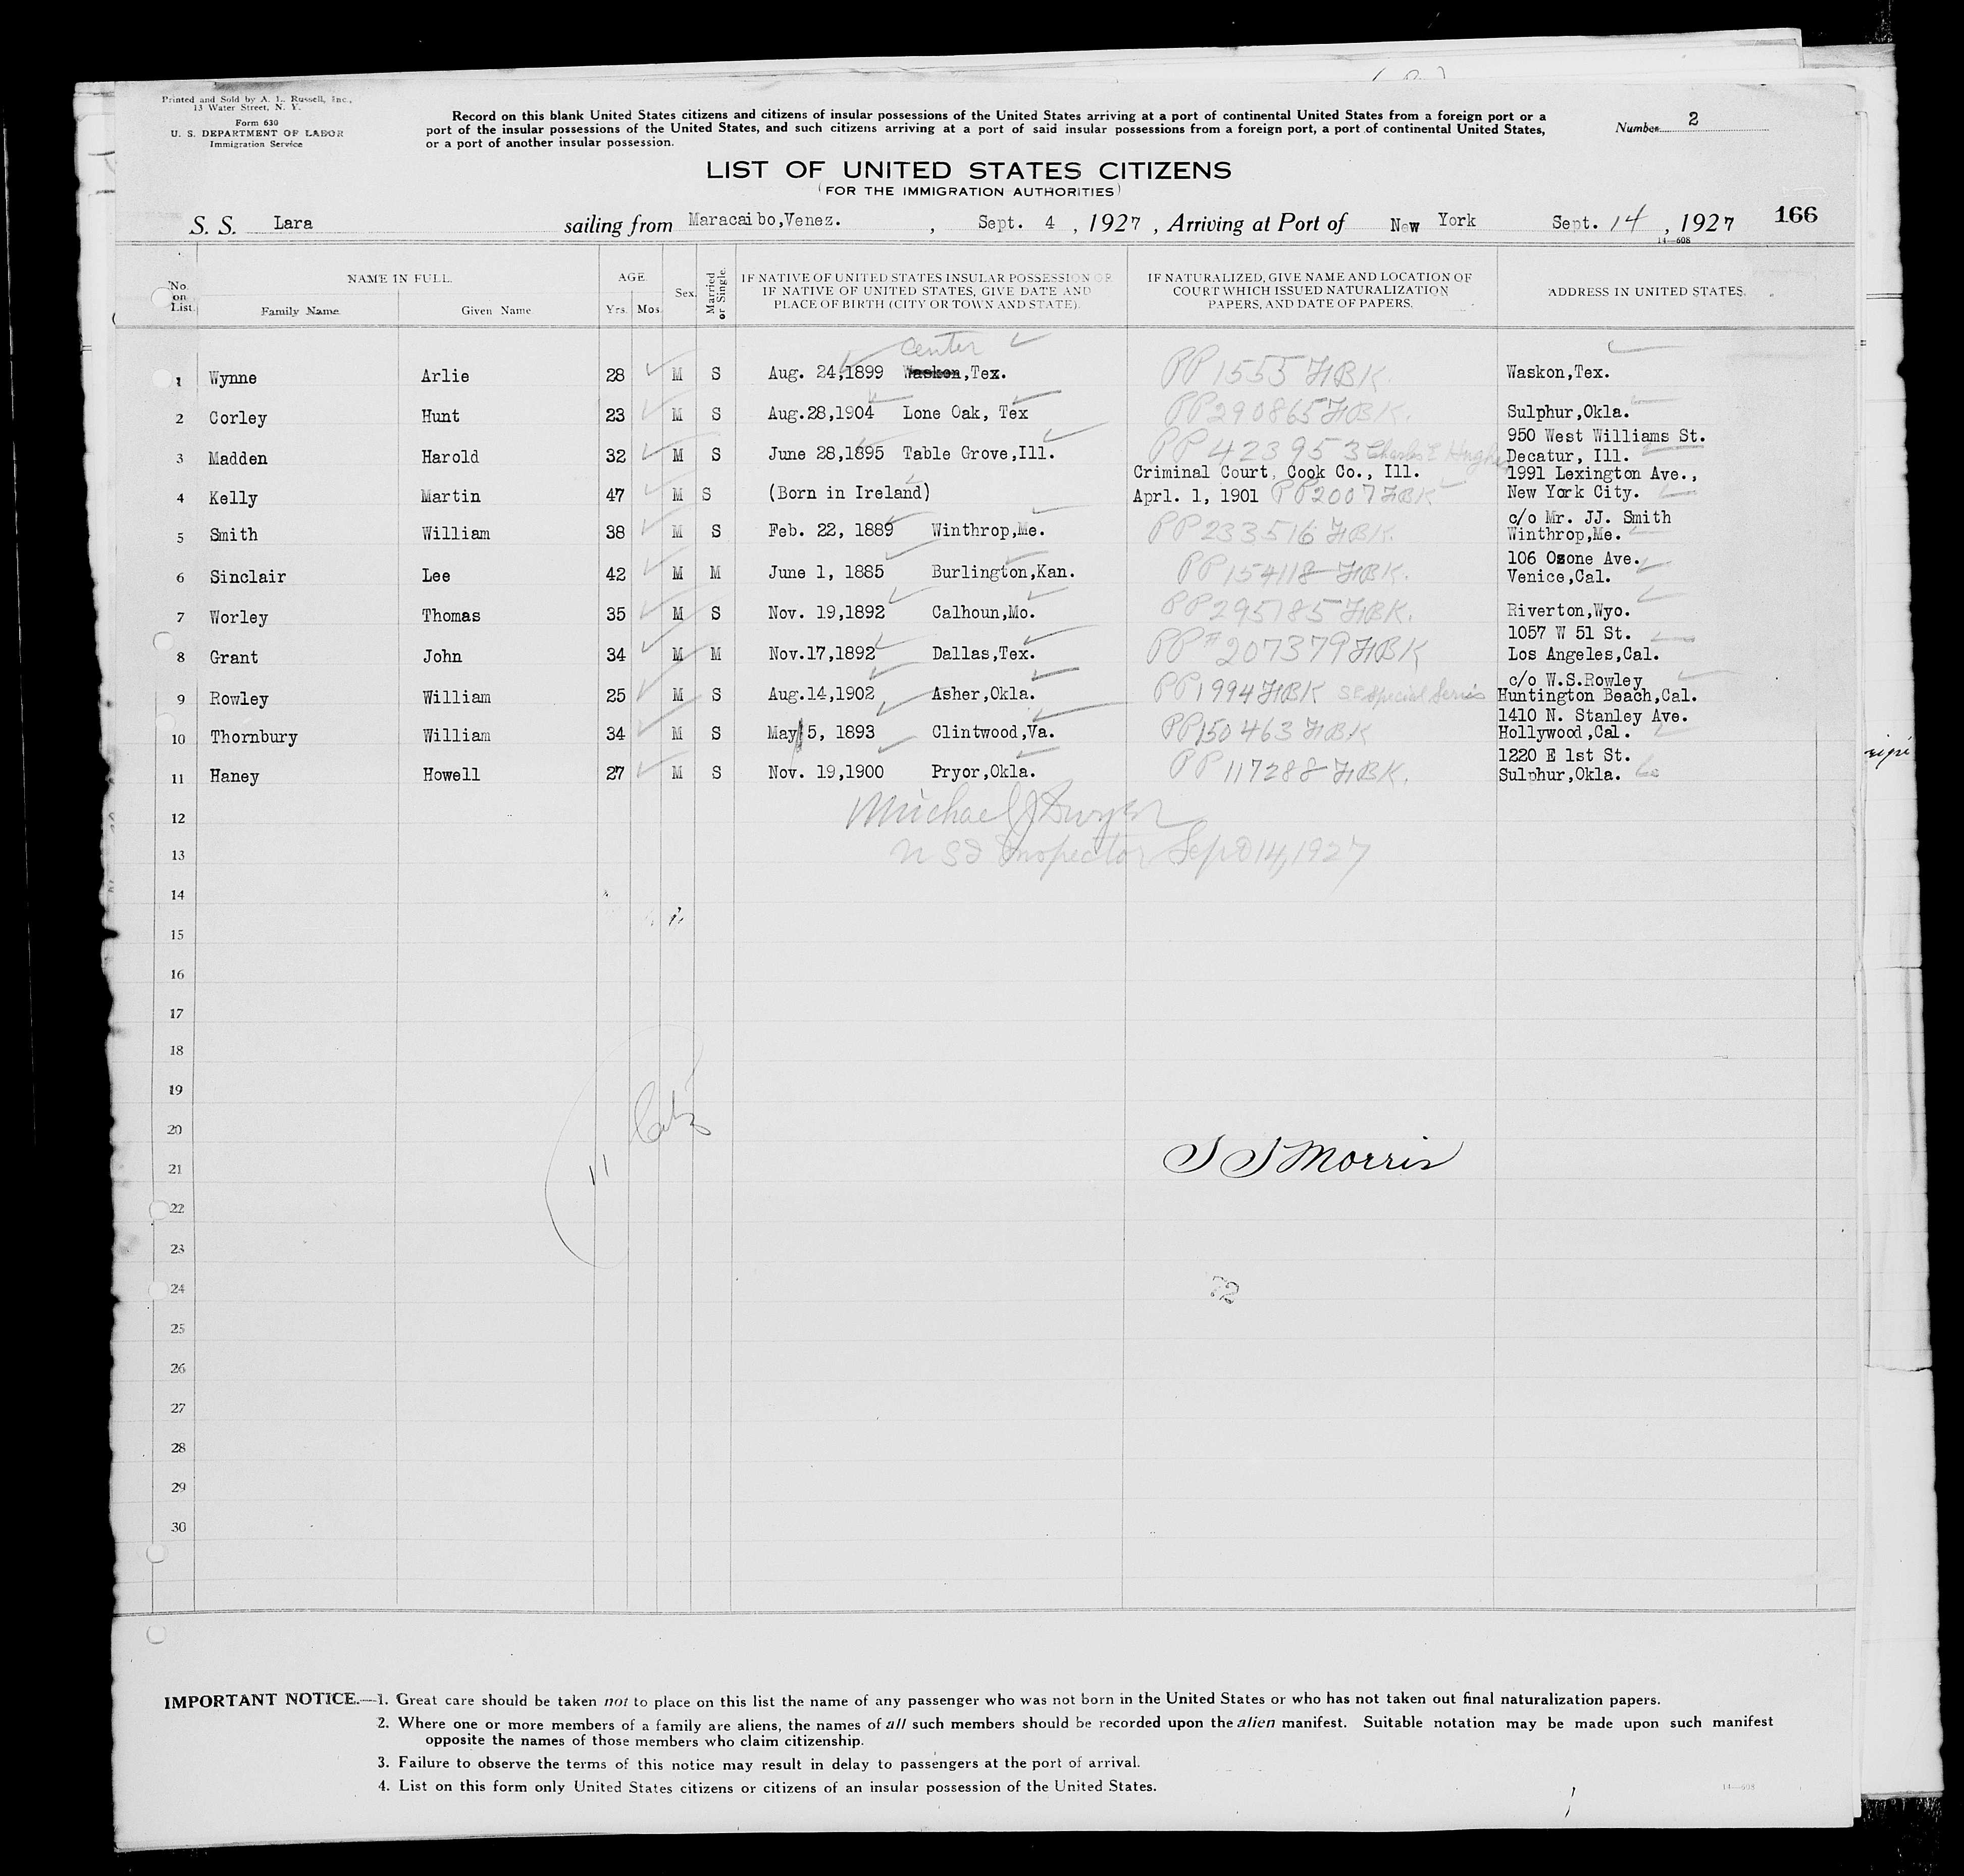 Printed and Sold by A. L. Russell, Inc.,
13 Water Street, N. Y.
Form 630
U. S. DEPARTMENT OF LABOR
Immigration Service
Record on this blank United States citizens and citizens of insular possessions of the United States arriving at a port of continental United States from a foreign port or a
port of the insular possessions of the United States, and such citizens arriving at a port of said insular possessions from a foreign port, a port of continental United States,
or a port of another insular possession.
Number 2
LIST OF UNITED STATES CITIZENS
(FOR THE IMMIGRATION AUTHORITIES)
S. S. Lara sailing from Maracaibo,Venez. , Sept. 4 , 1927 , Arriving at Port of New York Sept. 14 , 1927 166
14—608
No. on List. NAME IN FULL. Family Name. Given Name AGE. Yrs. Mos. Sex. Married or Single. IF NATIVE OF UNITED STATES INSULAR POSSESSION OR IF NATIVE OF UNITED STATES, GIVE DATE AND PLACE OF BIRTH (CITY OR TOWN AND STATE). IF NATURALIZED, GIVE NAME AND LOCATION OF COURT WHICH ISSUED NATURALIZATION PAPERS, AND DATE OF PAPERS. ADDRESS IN UNITED STATES.
Center
1 Wynne Arlie 28 M S Aug. 24,1899 Waskon,Tex. PP 1555 FBK. Waskon,Tex.
2 Corley Hunt 23 M S Aug.28,1904 Lone Oak, Tex PP 290865 FBK. Sulphur,Okla.
950 West Williams St.
3 Madden Harold 32 M S June 28,1895 Table Grove,Ill. PP 423953 Charles E Hughes Decatur, Ill.
Criminal Court, Cook Co., Ill. 1991 Lexington Ave.,
4 Kelly Martin 47 M S (Born in Ireland) Aprl. 1, 1901 PP 2007 FBK New York City.
c/o Mr. JJ. Smith
5 Smith William 38 M S Feb. 22, 1889 Winthrop,Me. PP 233516 FBK. Winthrop,Me.
106 Ozone Ave.
6 Sinclair Lee 42 M M June 1, 1885 Burlington,Kan. PP 154118 FBK. Venice,Cal.
7 Worley Thomas 35 M S Nov. 19,1892 Calhoun,Mo. PP 295785 FBK. Riverton,Wyo.
1057 W 51 St.
8 Grant John 34 M M Nov.17,1892 Dallas,Tex. PP # 207379 FBK Los Angeles,Cal.
c/o W.S.Rowley
9 Rowley William 25 M S Aug.14,1902 Asher,Okla. PP 1994 FBK Special Series Huntington Beach,Cal.
1410 N. Stanley Ave.
10 Thornbury William 34 M S May 5, 1893 Clintwood,Va. PP 150463 FBK Hollywood,Cal.
1220 E 1st St.
11 Haney Howell 27 M S Nov. 19,1900 Pryor,Okla. PP 117288 FBK. Sulphur,Okla.
12 Michael J Dwyer
13 Inspector Sept 14, 1927
14
15
16
17
18
19
20
21 11 S S Morris
22
23
24 72
25
26
27
28
29
30
IMPORTANT NOTICE.—1. Great care should be taken not to place on this list the name of any passenger who was not born in the United States or who has not taken out final naturalization papers.
2. Where one or more members of a family are aliens, the names of all such members should be recorded upon the alien manifest. Suitable notation may be made upon such manifest
opposite the names of those members who claim citizenship.
3. Failure to observe the terms of this notice may result in delay to passengers at the port of arrival.
4. List on this form only United States citizens or citizens of an insular possession of the United States.
14—608